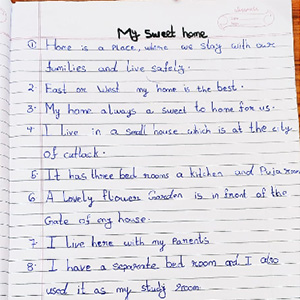 My Sweet home
① Home is a place, where we stay with our
families and live safely.
2. East or West my home is the best.
3. My home always a sweet to home for us.
4 I live in a small house which is at the city
of cuttack.
5. It has three bed rooms a kitchen and Puja room
6 A lovely flowers Garden is in front of the
Gate of my house.
7 I live here with my Parents
8. I have a separate bed room and I also
used it as my study room